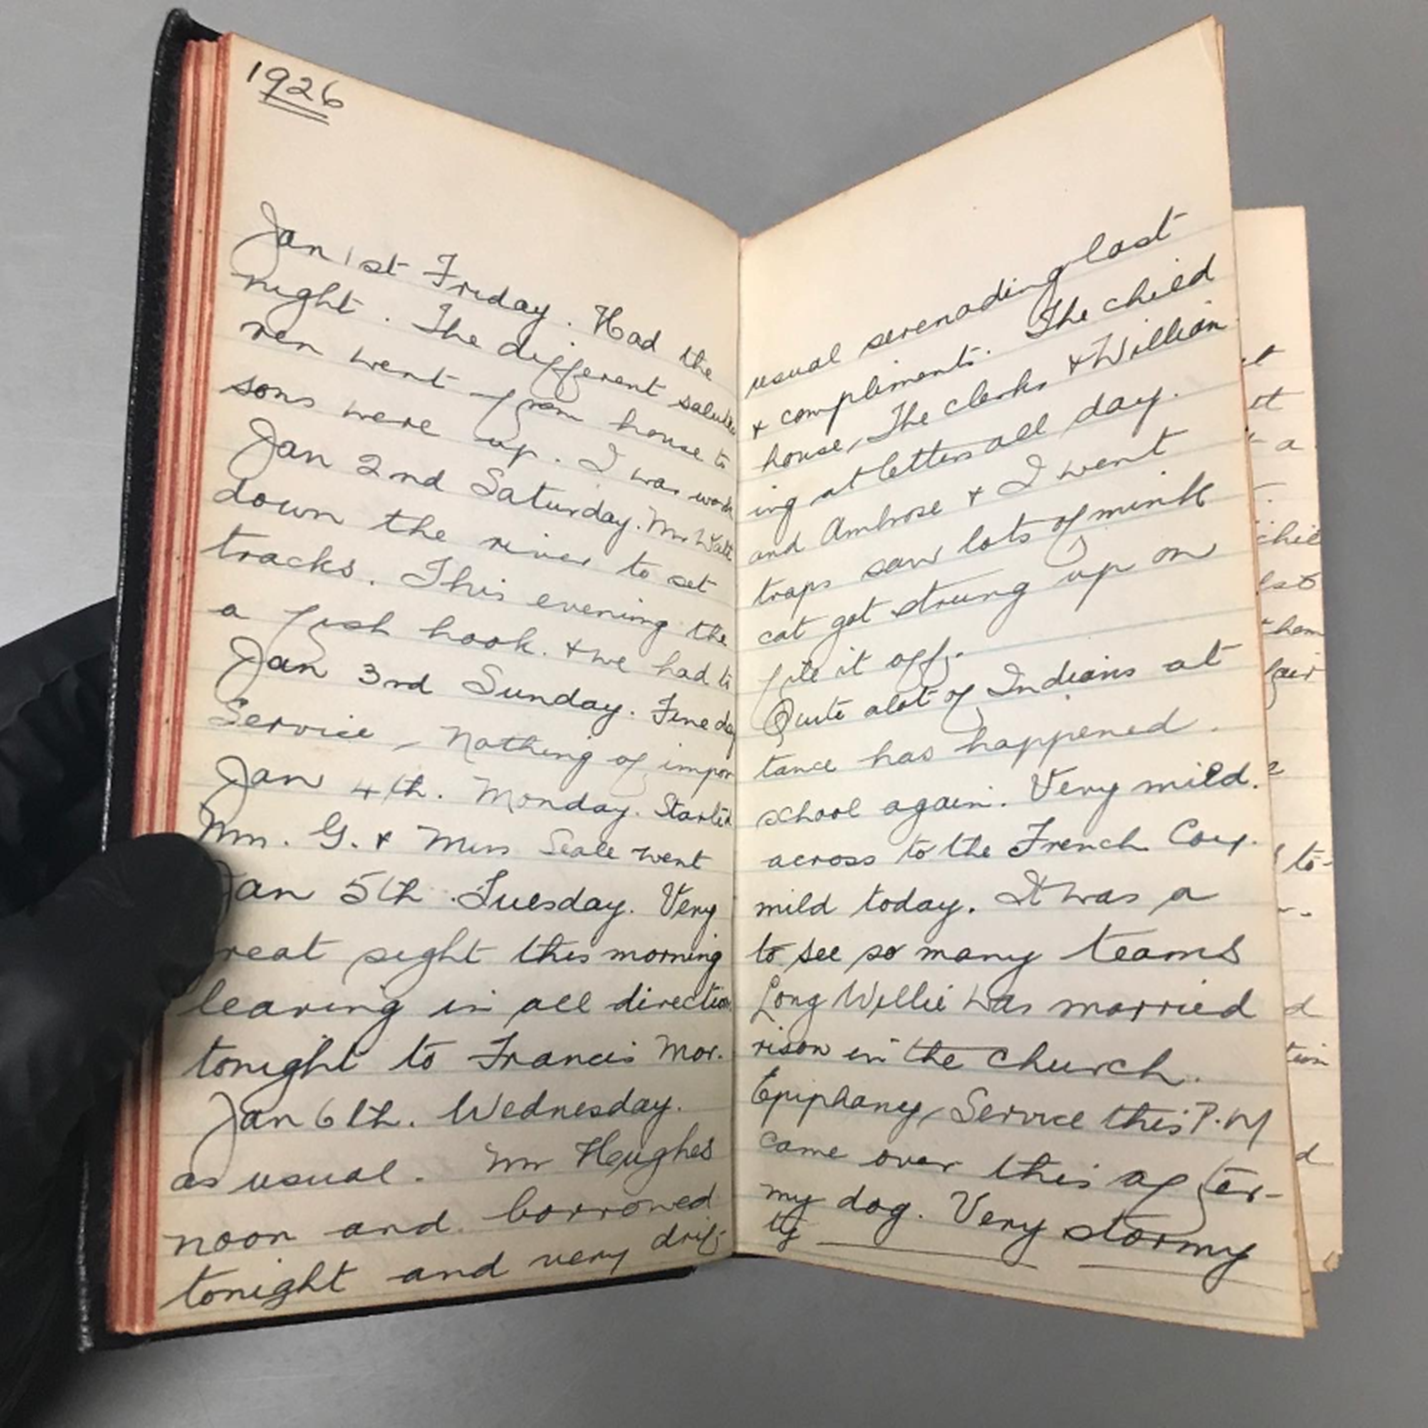 1926
Jan 1st Friday. Had the usual serenading last
night. The different salutes & compliments. The child
ren went from house to house, The clerks & William
sons were up. I was work ing at letters all day.
Jan 2nd Saturday. Mr Watt and Ambrose & I went
down the river to set traps saw lots of mink
tracks. This evening the cat got strung up on
a fish hook. & we had to file it off.
Jan 3rd Sunday. Fine day Quite alot of Indians at
Service, Nothing of impor tance has happened.
Jan 4th. Monday. Started school again. Very mild.
Mr. G. & Miss Seale went across to the French Coy.
Jan 5th Tuesday. Very mild today. It was a
reat sight this morning to see so many teams
leaving in all direction Long Willie was married
tonight to Francis Mor. rison in the church.
Jan 6th. Wednesday. Epiphany, Service this P.M
as usual. Mr Hughes came over this after-
noon and borrowed my dog. Very stormy
tonight and very drif- ty